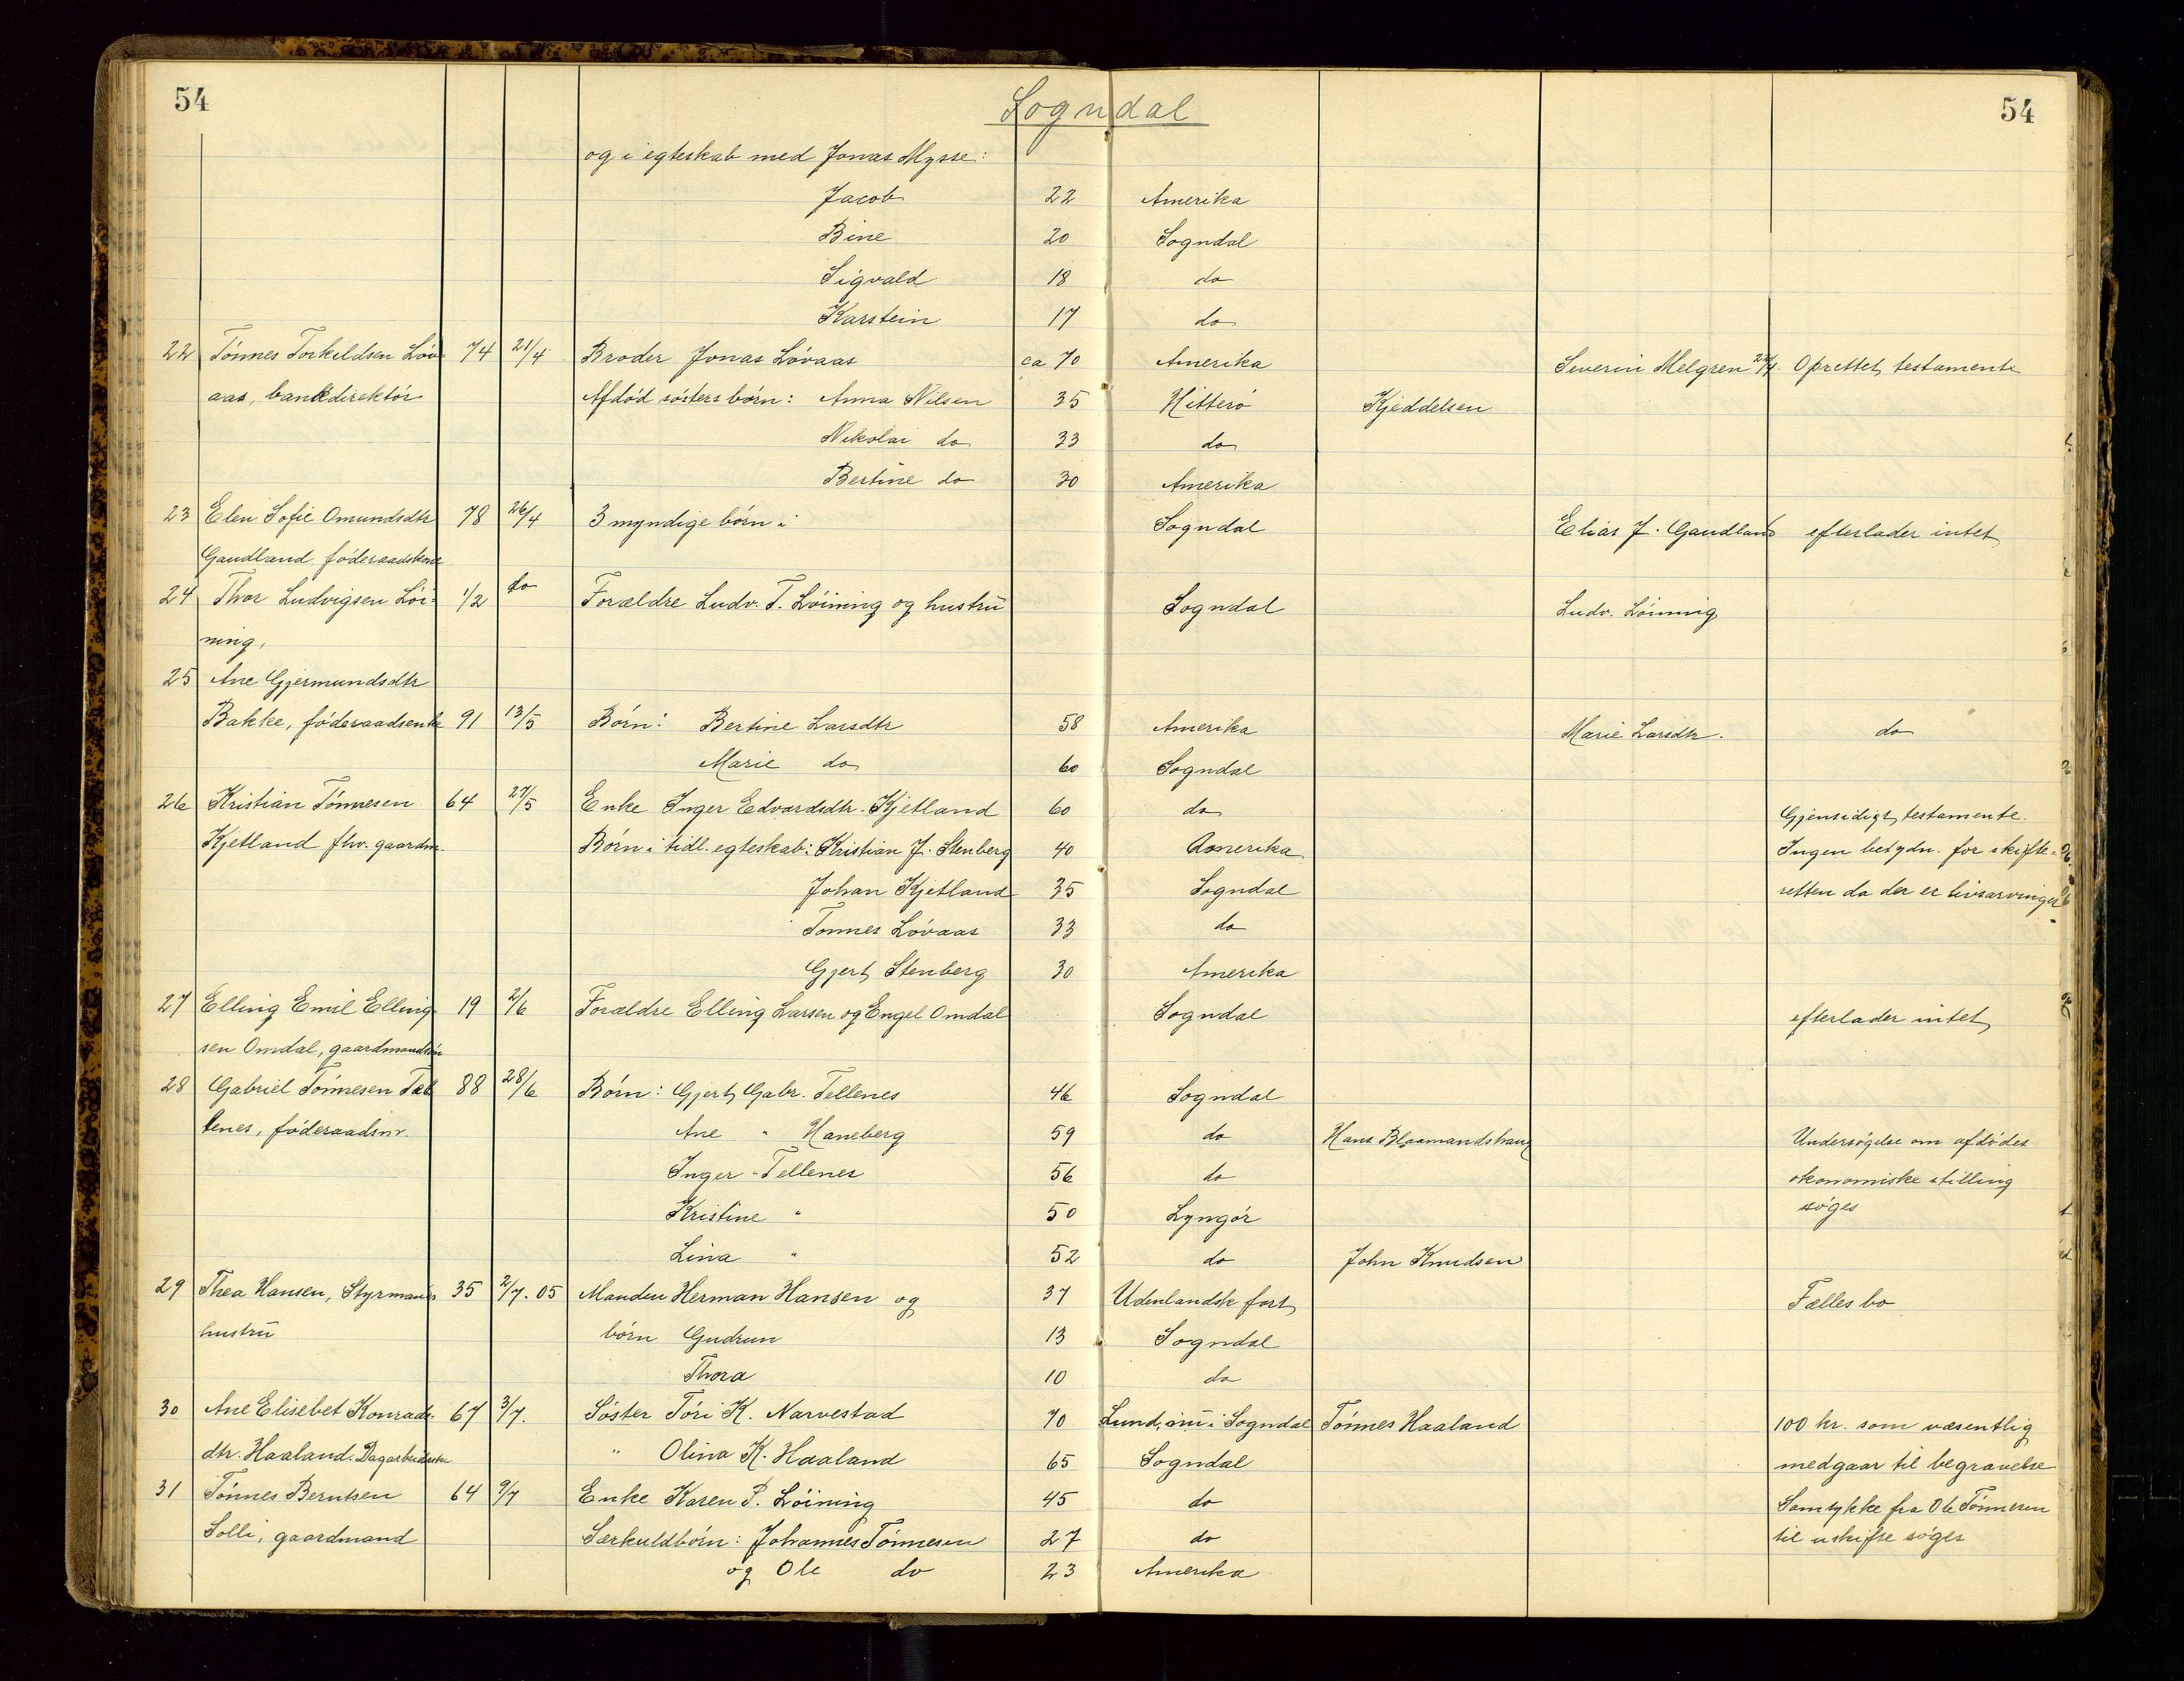 54
54
Sogndal
og i egteskab med Jonas Mysse:
Jacob 22 Amerika
Bine 20 Sogndal
Sigvald 18 do
Karstein 17 do
22 Tónnes Torkildsen Lóv- 74 21/4 Broder Jonas Lóvaas ca 70 Amerika Severin Melgren Oprettet testamente
aas, bankdirektór Afdód sósters bórn: Anna Nilsen 35 Hitteró Kjeddelsen
Nikolai do 33 do
Bertine do 30 Amerika
23 Elen Sofie Omundsdtr 78 26/4 3 myndige bórn i Sogndal Elias J. Gaudland efterlader intet
Gaudland, fóderaadskone
24 Thor Ludvigsen Lói- 1/2 do Forældre Ludv. T. Lóining og hustrú Sogndal Ludv. Lóining
ning,
25 Ane Gjermundsdtr
Bakke, fóderaadsenke 91 13/5 Bórn: Bertine Larsdtr 58 Amerika Marie Larsdtr. do
Marie do 60 Sogndal
26 Kristian Tónnesen 64 27/5 Enke Inger Edvardsdtr. Kjetland 60 do Gjensidigt testamente.
Kjetland fhv. gaardm. Bórn i tidl. egteskab: Kristian J. Stenberg 40 Amerika Ingen betydn. for skifte-
Johan Kjetland 35 Sogndal retten da der er livsarvinger
Tonnes Lóvaas 33 do
Gjert Stenberg 30 Amerika
27 Elling Emil Elling- 19 2/6 Forældre Elling Larsen og Engel Omdal Sogndal efterlader intet
sen Omdal, gaardmandsón
28 Gabriel Tónnesen Tel- 88 28/6 Bórn: Gjert Gabr. Tellenes 46 Sogndal
lenes, fóderaadsm. Ane " Haneberg 59 do Hans Blaamandshaug Undersógelse om afdódes
Inger " Tellenes 56 do ókonomiske stilling
Kristine " 50 Lyngór sóges
Lina " 52 do John Knudsen
29 Thea Hansen, Styrmands 35 2/7.05 Manden Herman Hansen og 37 Udenlandsk fart Fælles bo
hustrú bórn Gudrun 13 Sogndal
Thora 10 do
30 Ane Elisebet Konrads- 67 3/7. Sóster Tóri K. Narvestad 70 Lund, nu i Sogndal Tónnes Haaland 100 kr. som væsentlig
dtr. Haaland. Dagarbeiderske " Olina K. Haaland 65 Sogndal medgaar til begravelse
31 Tónnes Berntsen 64 9/7 Enke Karen P. Lóining 45 do Samtykke fra Ole Tónnesen
Solli, gaardmand Særkuldbórn: Johannes Tónnesen 27 do til uskifte sóges
og Ole do 23 Amerika